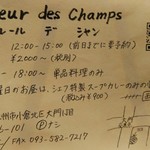 eur des Champs
ルール デ シャン
12:00-15:00 (前日までに要予約)
¥2000~ (税別)
- 18:00 単品料理のみ
曜日のお昼は、シェフ特製スープカレーのみの
(税込み¥900)
州市小倉北区大門1丁目
6-101 Pナシ
/FAX 093-582-7217